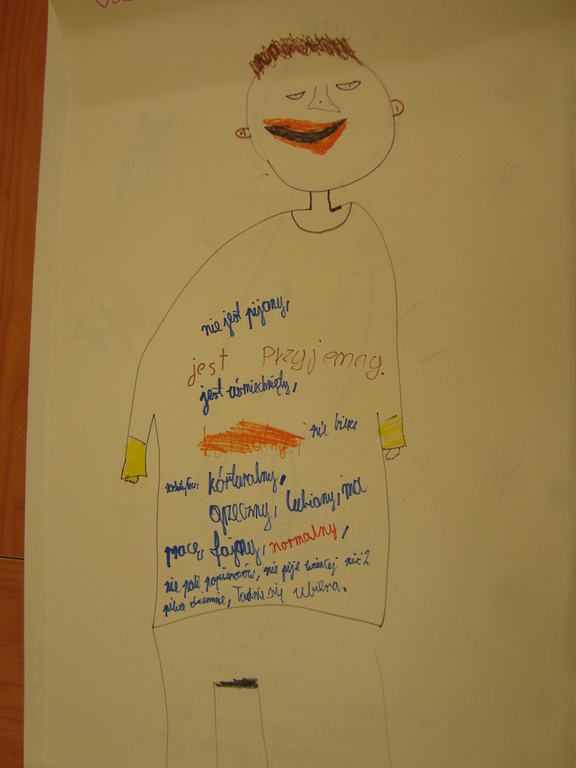 nie jest pijany,
jest przyjemny.
jest uśmiechnięty,
nie bierze
kórturalny,
grzeczny, lubiany, ma
pracę, fajny, normalny,
nie pali papierosów, nie pije więcej niż 2
piwa dziennie, ładnie się ubiera.